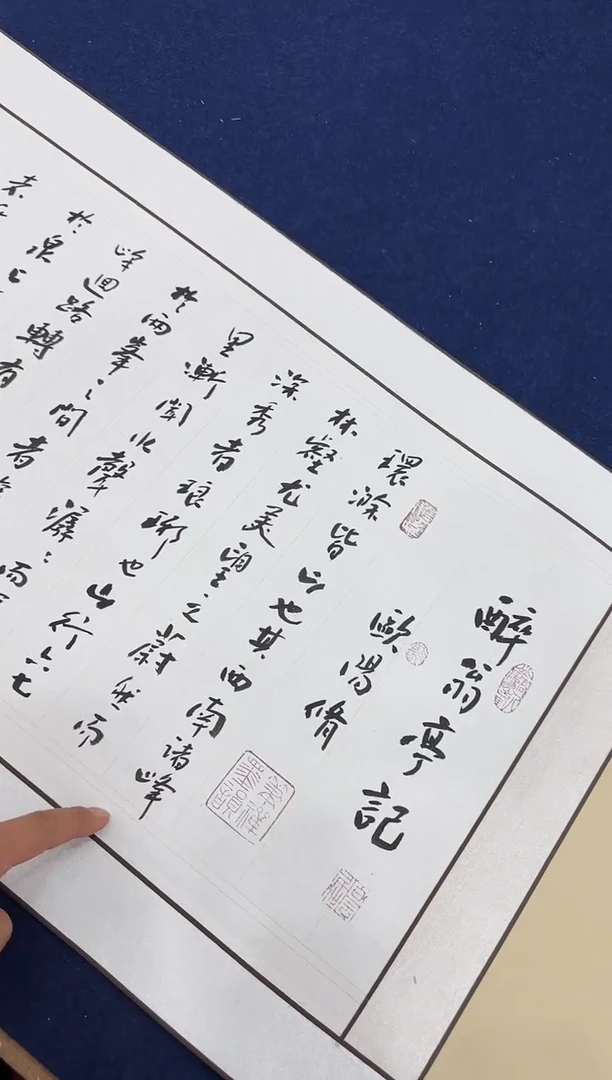 醉翁亭記
歐陽脩
環滁皆山也其西南諸峰
林壑尤美望之蔚然而
深秀者琅琊也山行六七
里漸聞水聲潺〻而
於兩峯之間者
峰迴路轉有
於泉上